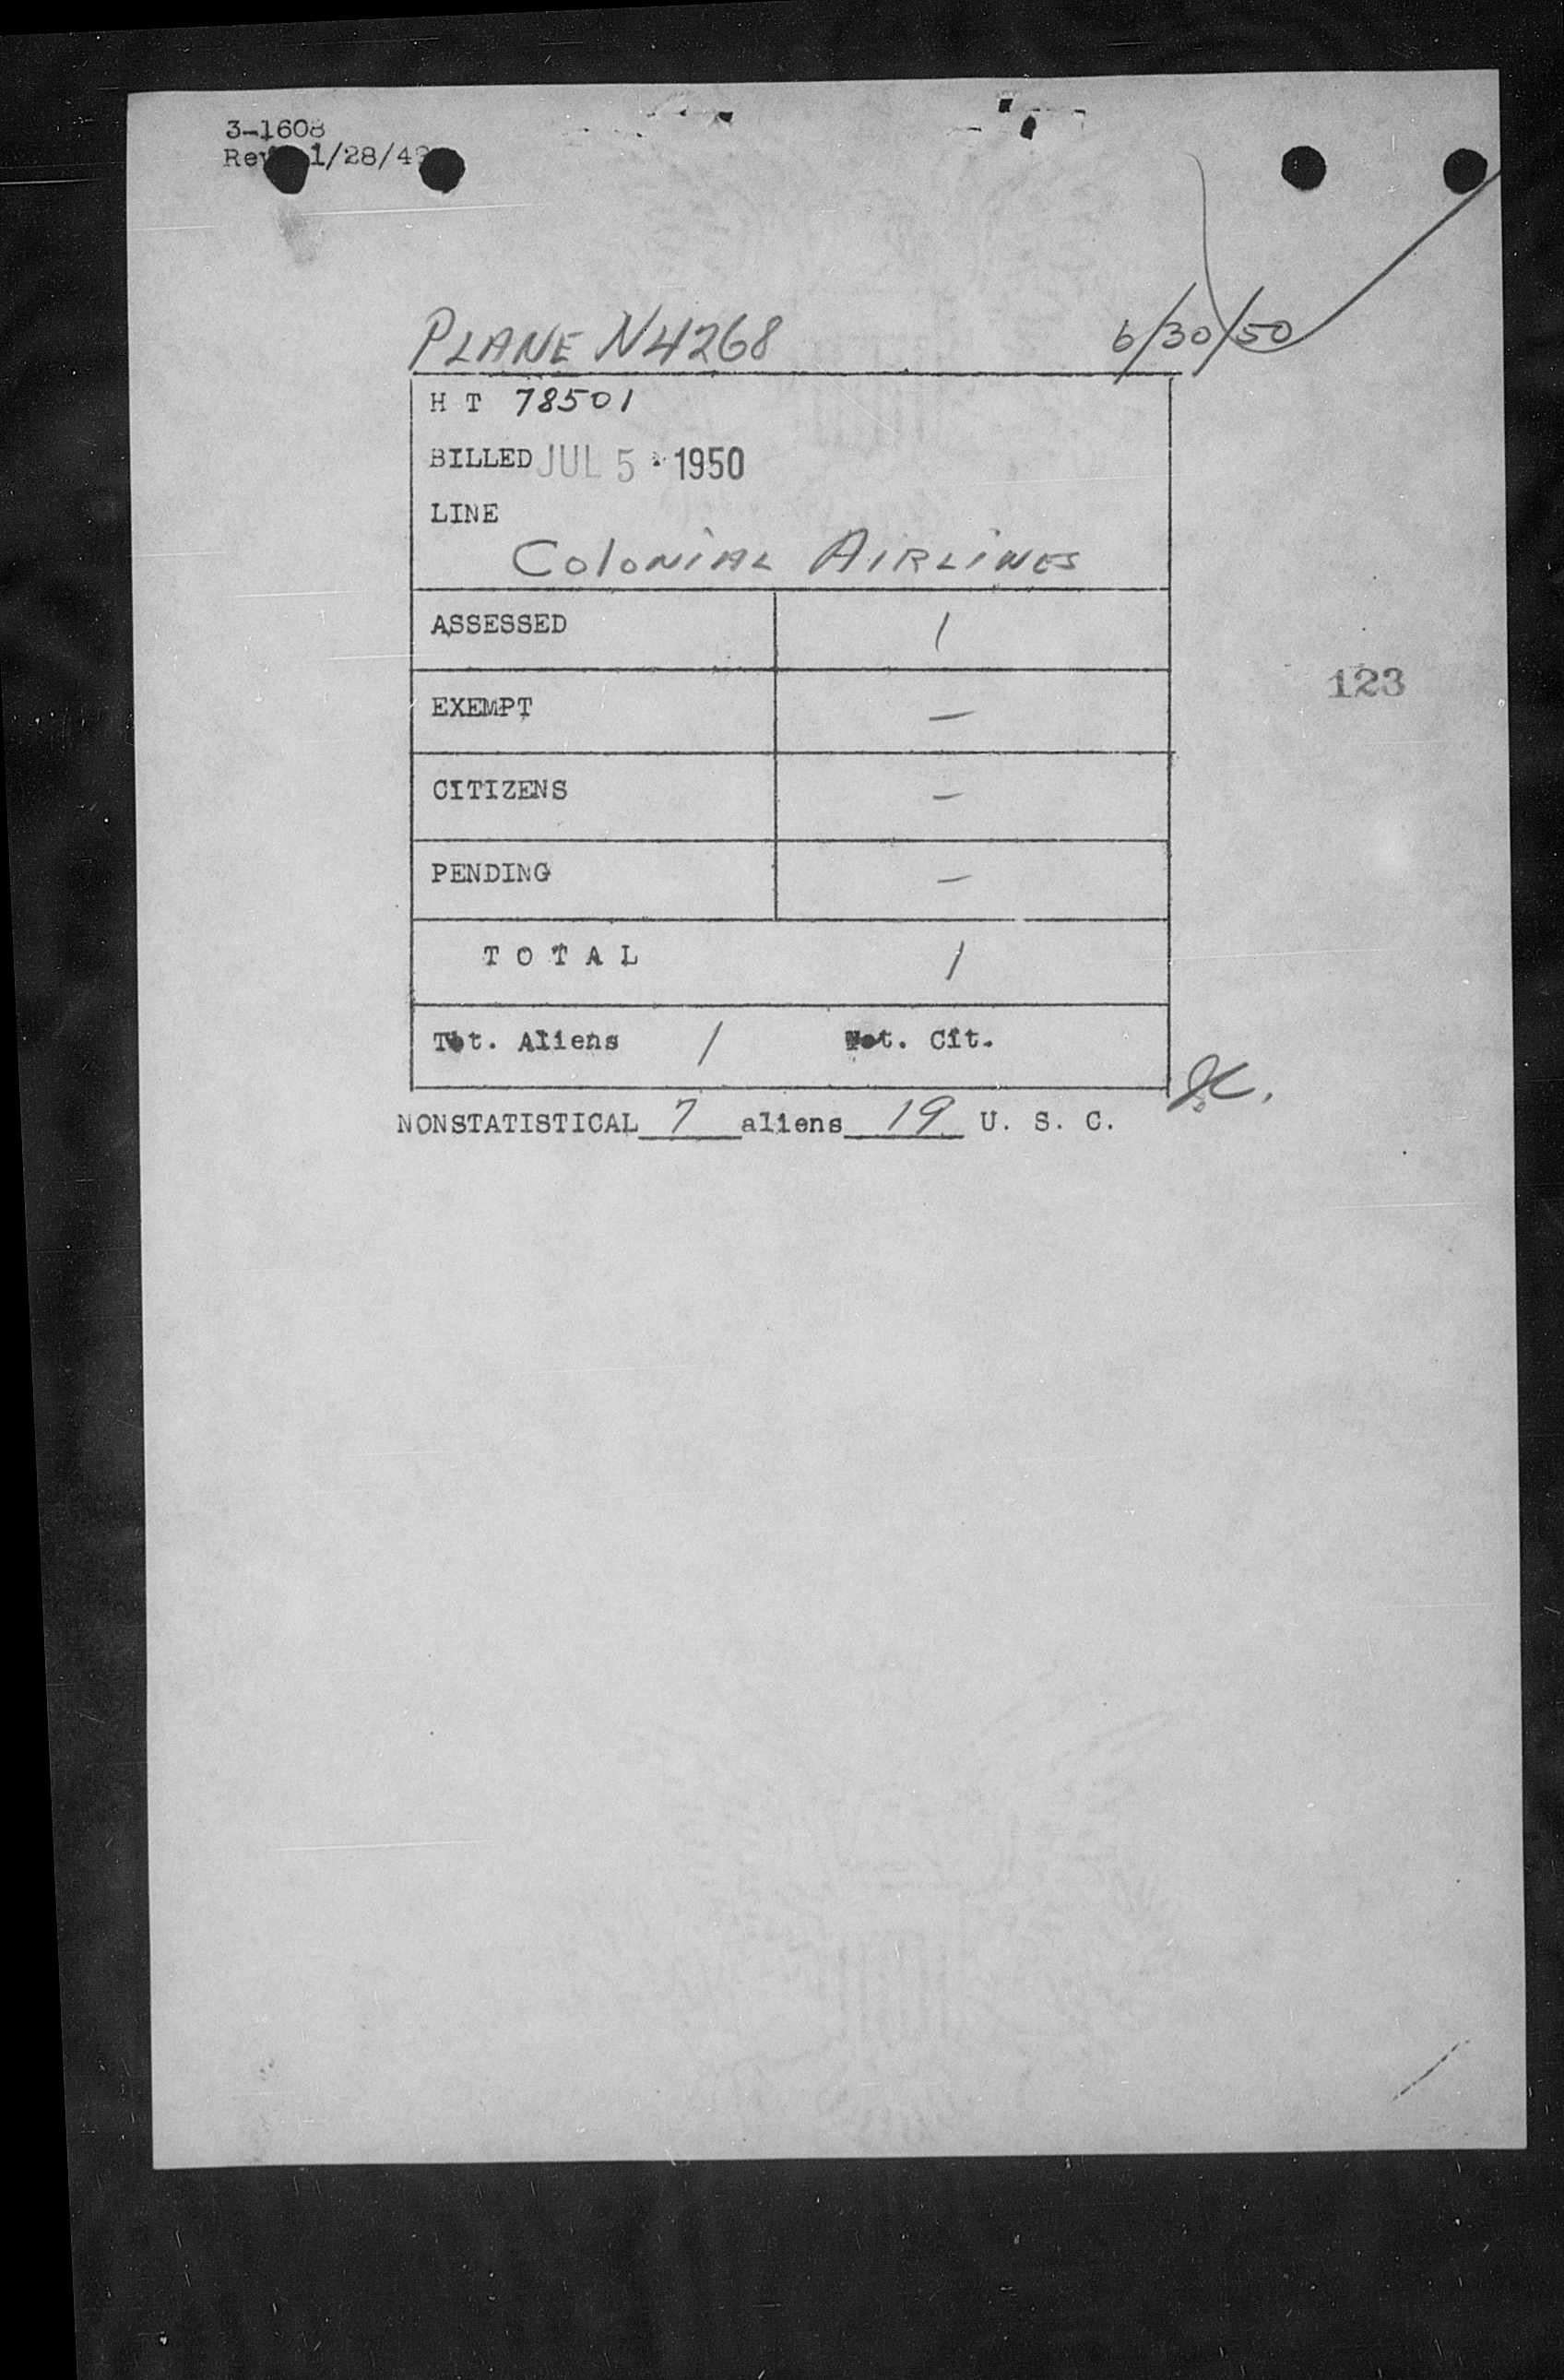 3-1608
1/28/49
PLANE N4268 6/30/50
H T 78501
BILLED JUL 5 1950
LINE
COLONIAL AIRLINES
ASSESSED 1
EXEMPT —
123
CITIZENS —
PENDING —
T O T A L 1
Tot. Aliens 1 Tot. Cit.
NONSTATISTICAL 7 aliens 19 U. S. C.